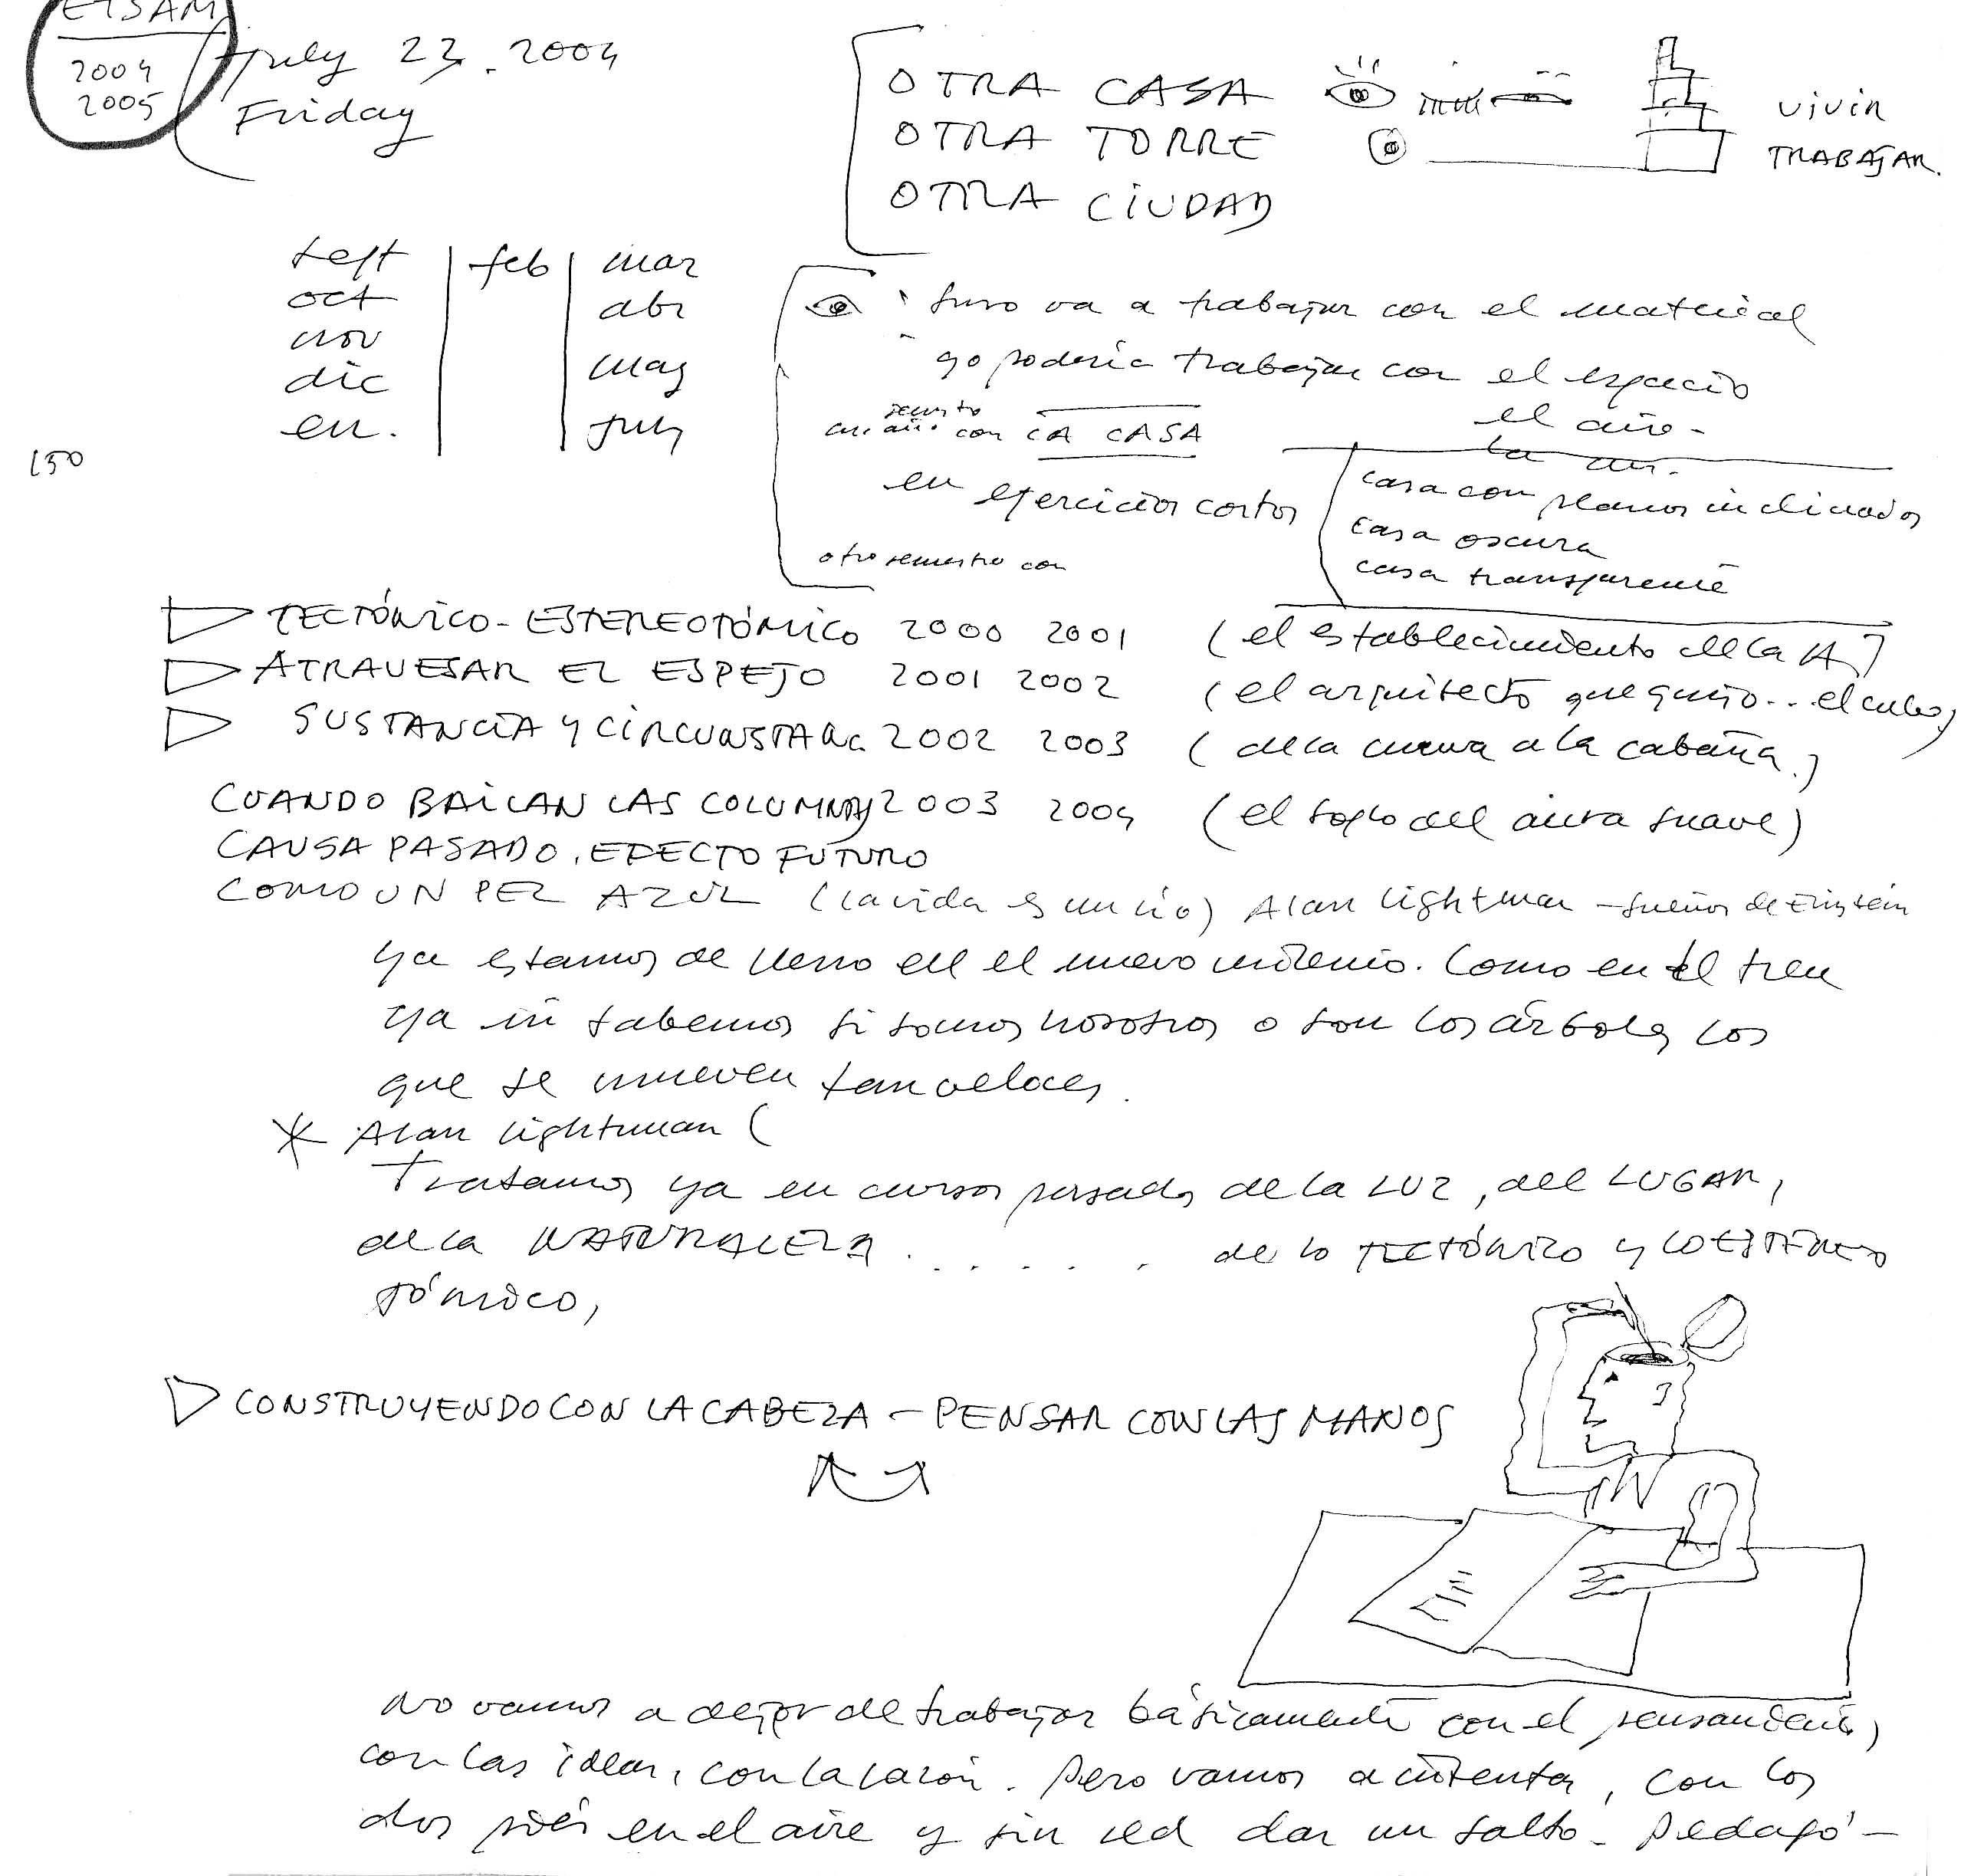 ETSAM
2004
2005
July 23. 2004
Friday
OTRA CASA
OTRA TORRE
OTRA CIUDAD
vivir
TRABAJAR.
sept feb mar
oct abr
nov may
dic july
en.
150
suso va a trabajar con el material
yo podería trabajar con el espacio
el aire
la
con LA CASA
en ejercicios cortos
otro semestre con
casa con planos inclinados
casa oscura
casa transparente
TECTÓNICO-ESTEREOTÓMICO 2000 2001 (el establecimiento de la A)
ATRAVESAR EL ESPEJO 2001 2002 (el arquitecto que quiso.. el cubo)
SUSTANCIA Y CIRCUNSTANC 2002 2003 (de la cueva a la cabaña.)
CUANDO BAILAN LAS COLUMNAS 2003 2004 (el soplo del aura suave)
CAUSA PASADO, EFECTO FUTURO
COMO UN PEZ AZUL (la vida es un río) Alan Lightman - sueños de Einstein
ya estamos de lleno en el nuevo milenio. Como en el tren
ya ni sabemos si somos nosotros o son los árboles los
que se mueven tan veloces.
* Alan Lightman (
Tratamos ya en cursos pasados de la LUZ, del LUGAR,
de la NATURALEZA . . . . . . de lo TECTÓNICO y LO ESTEREO
TÓMICO,
CONSTRUYENDO CON LA CABEZA - PENSAR CON LAS MANOS
No vamos a dejar de trabajar básicamente con el pensamiento,
con las ideas, con la razón. Pero vamos a intentar, con los
dos pies en el aire y sin red dar un salto. Pedagó-